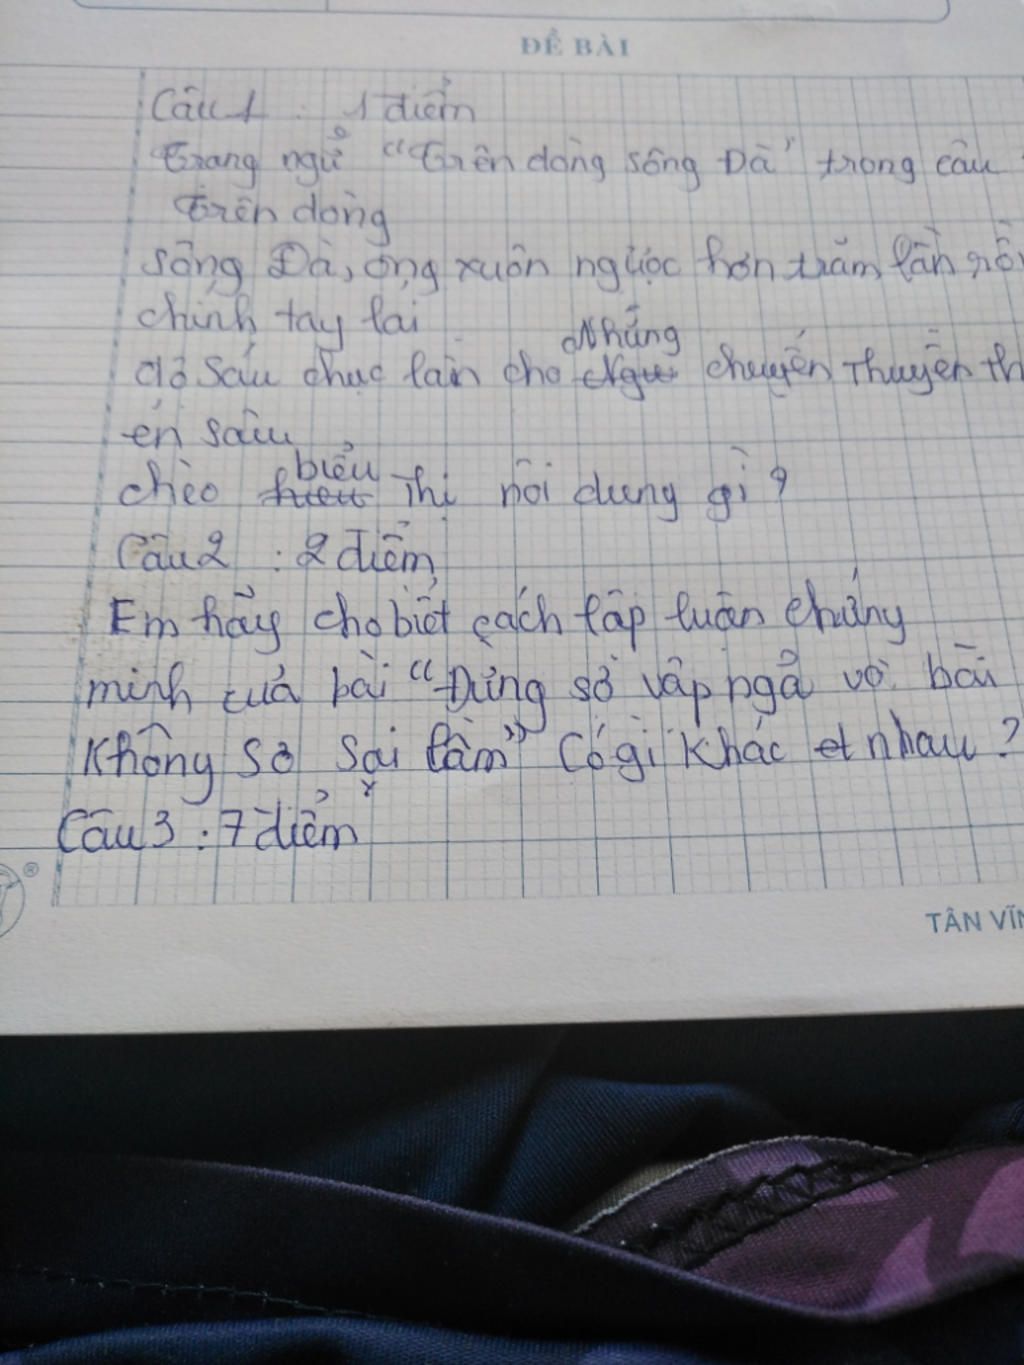 ĐỀ BÀI
Câu 1 : 1 điểm
Trạng ngữ "Trên dòng sông Đà" trong câu
Trên dòng
sông Đà, ông xuôn ngược hơn trăm lần rồi
chính tay lái
Những
đò sáu chục lần cho chuyến Thuyền th
én sáu
biểu
chèo Thị nội dung gì ?
Câu 2 : 2 điểm
Em hãy cho biết cách lập luận chứng
minh của bài "Đừng sợ vấp ngã và bài
Không sợ sai lầm" Có gì khác nhau ?
Câu 3 : 7 điểm
®
TÂN VĨN